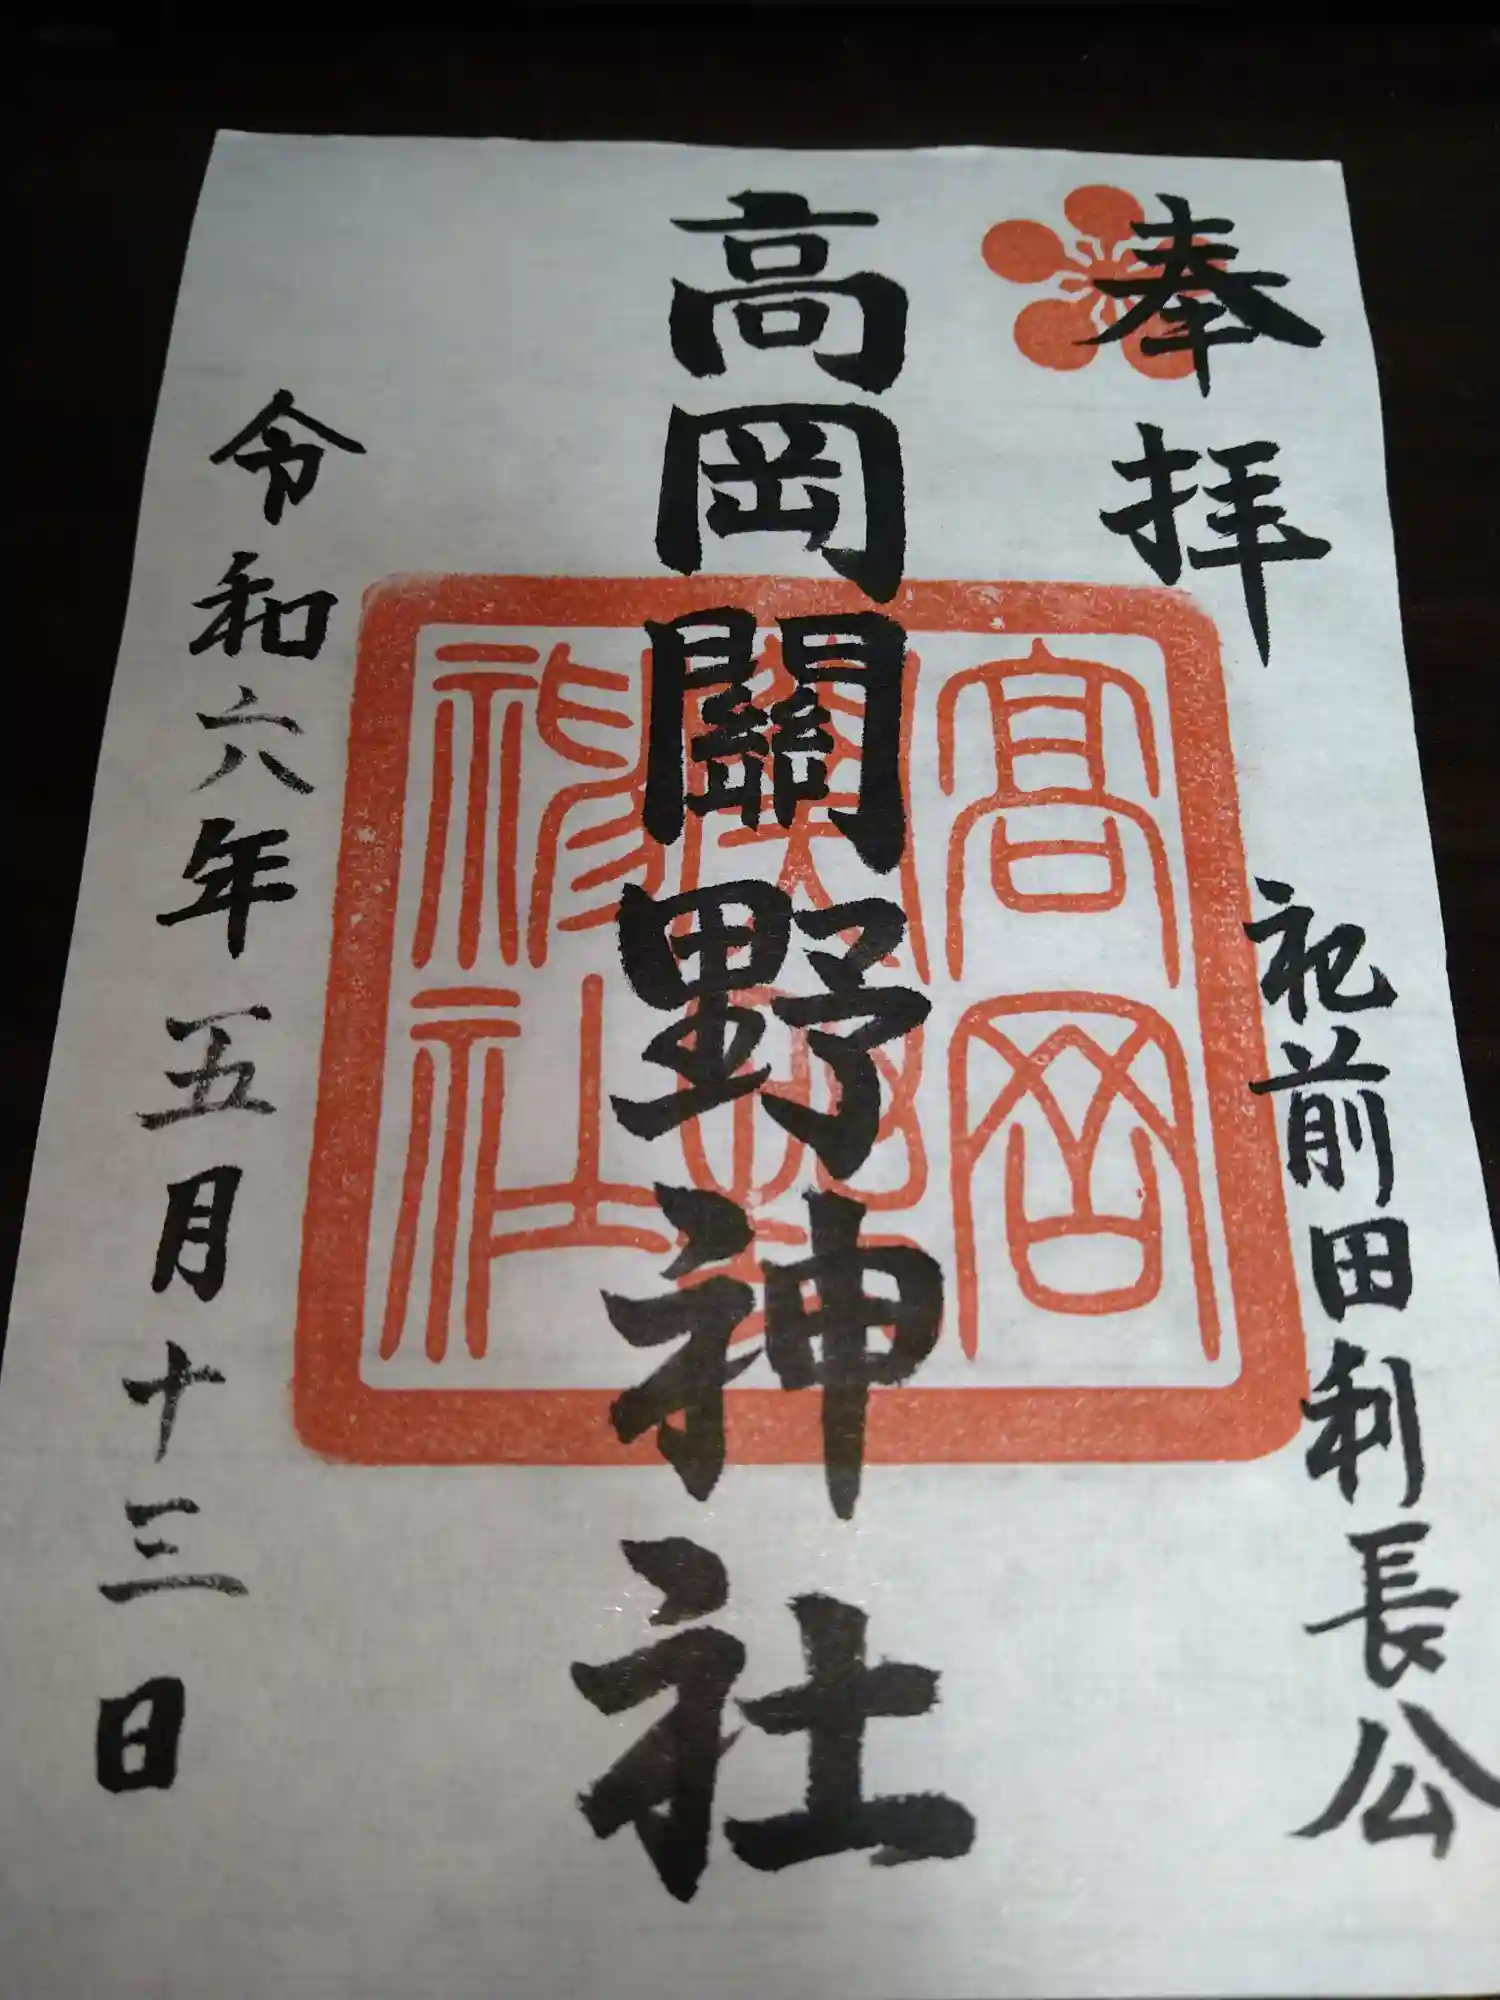 奉拝
祀前田利長公
高岡關野神社
高岡
関野
神社
令和六年五月十三日